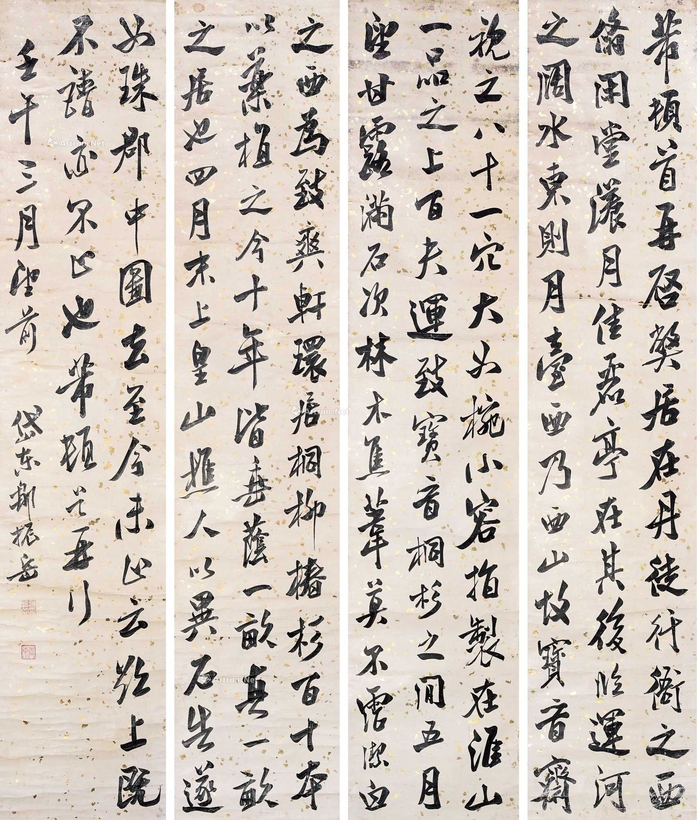 芾頓首再啓獘居在丹徒行衙之西
翛閑堂漾月佳麗亭在其後臨運河
之闊水東則月臺西乃西山故寶晉齋
視之八十一穴大如椀小容指製在淮山
一品之上百夫運致寶晉桐杉之間五月
望甘露滿石次林木焦葦莫不霑潔白
之西為致爽軒環居桐柳椿杉百十本
以藥植之今十年皆垂蔭一畝真一畝
之居也四月末上皇山樵人以異石告遂
如珠郡中圖去至今未止云欲上既
不請亦不止也芾頓首再行
壬午三月望前
岱東鄒振岳